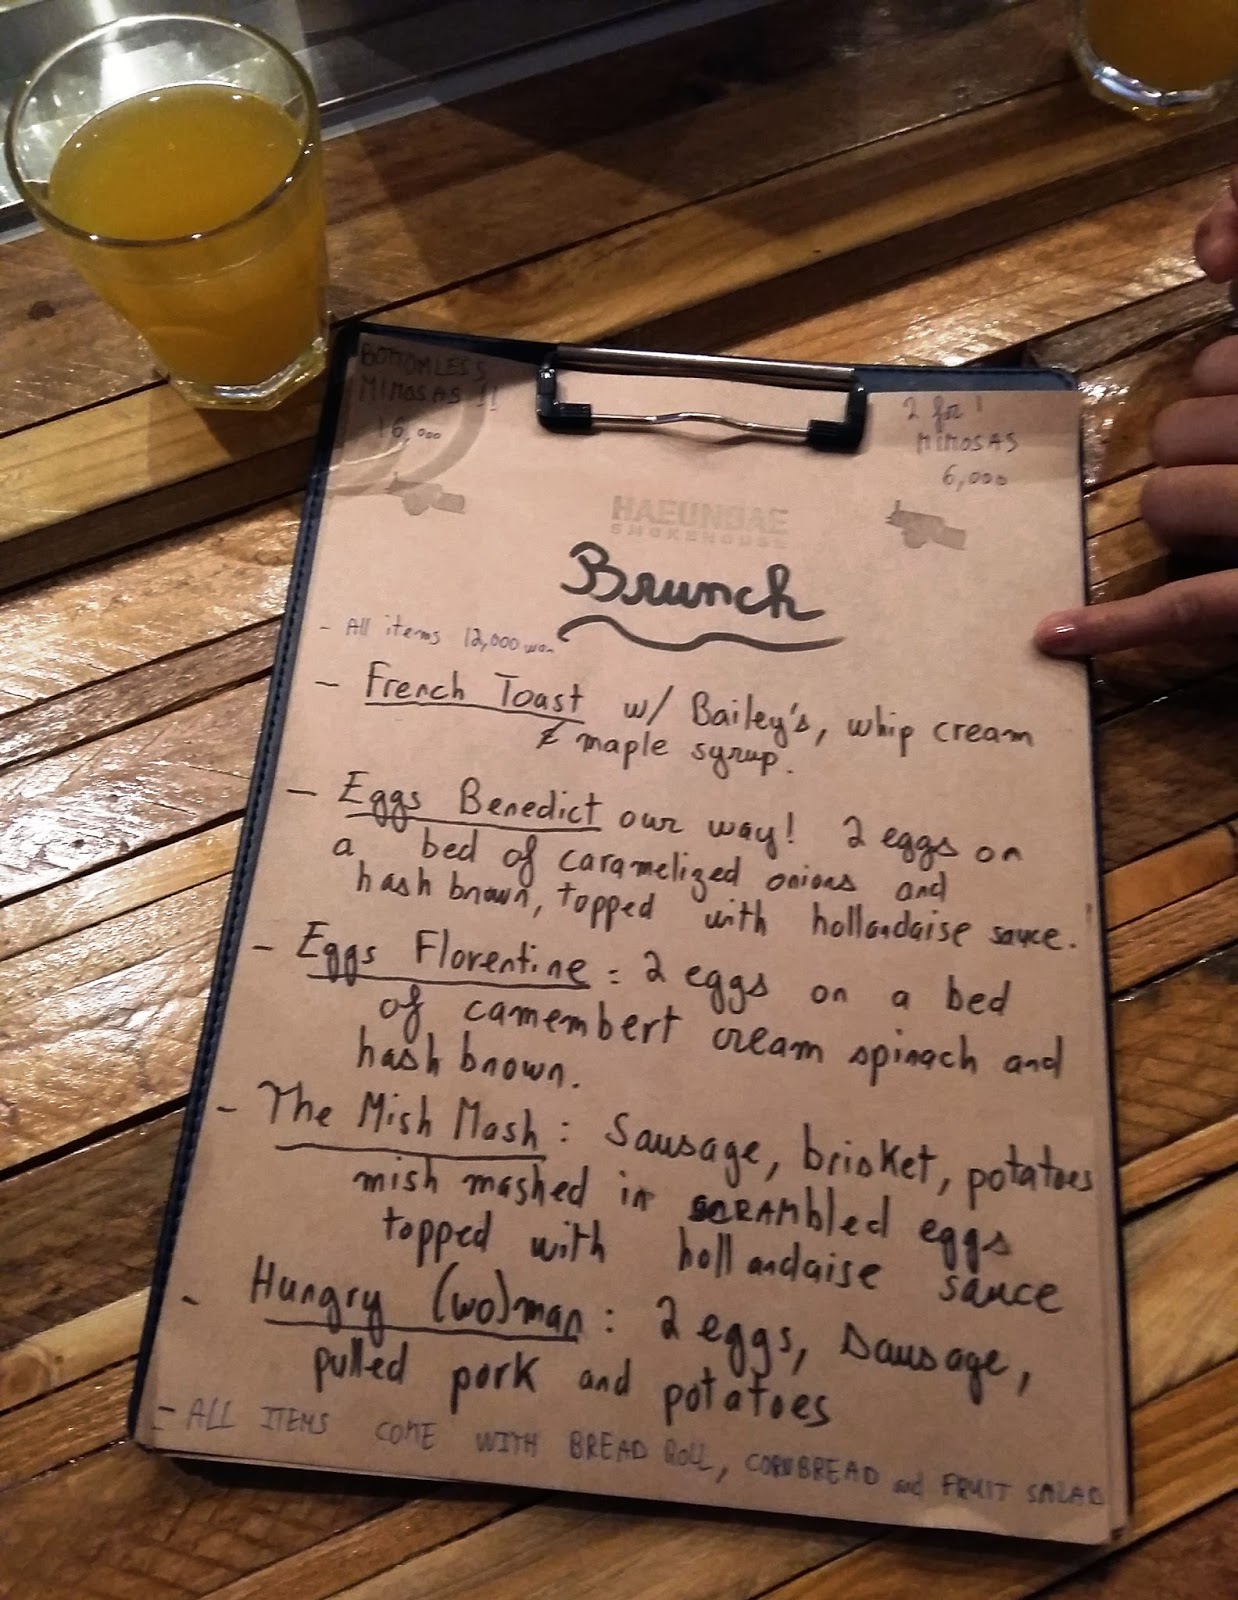 BOTTOMLESS
MIMOSAS !!
16,000
2 for 1
MIMOSAS
6,000
HAEUNDAE
SMOKEHOUSE
Brunch
- All items 12,000 won
- French Toast w/ Bailey's, whip cream
& maple syrup.
- Eggs Benedict our way! 2 eggs on
a bed of caramelized onions and
hash brown, topped with hollandaise sauce.
- Eggs Florentine : 2 eggs on a bed
of camembert cream spinach and
hash brown.
- The Mish Mash : Sausage, brisket, potatoes
mish mashed in SCRAMbled eggs
topped with hollandaise sauce
- Hungry (wo)man : 2 eggs, sausage,
pulled pork and potatoes
- ALL ITEMS COME WITH BREAD ROLL, CORNBREAD and FRUIT SALAD